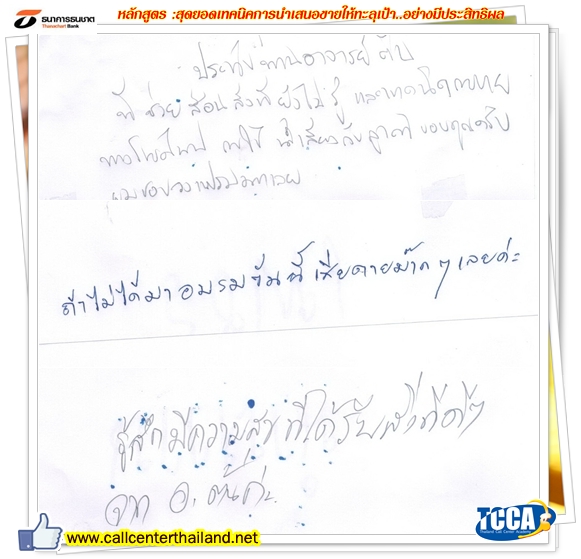 ธนาคารธนชาต
Thanachart Bank
หลักสูตร :สุดยอดเทคนิคการนำเสนอขายให้ทะลุเป้า..อย่างมีประสิทธิผล
ประทับใจท่านอาจารย์ ต้น
ที่ช่วยสอนสิ่งที่ยังไม่รู้ และเทคนิคการขาย
ทางโทรศัพท์ การใช้น้ำเสียงกับลูกค้า ขอบคุณครับ
ถ้าไม่ได้มาอบรมวันนี้ เสียดายม๊าก ๆ เลยค่ะ
รู้สึกมีความสุขที่ได้รับสิ่งที่ดีๆ
จาก อ. ต้นค่ะ
www.callcenterthailand.net
TCCA
Thailand Call Center Academy